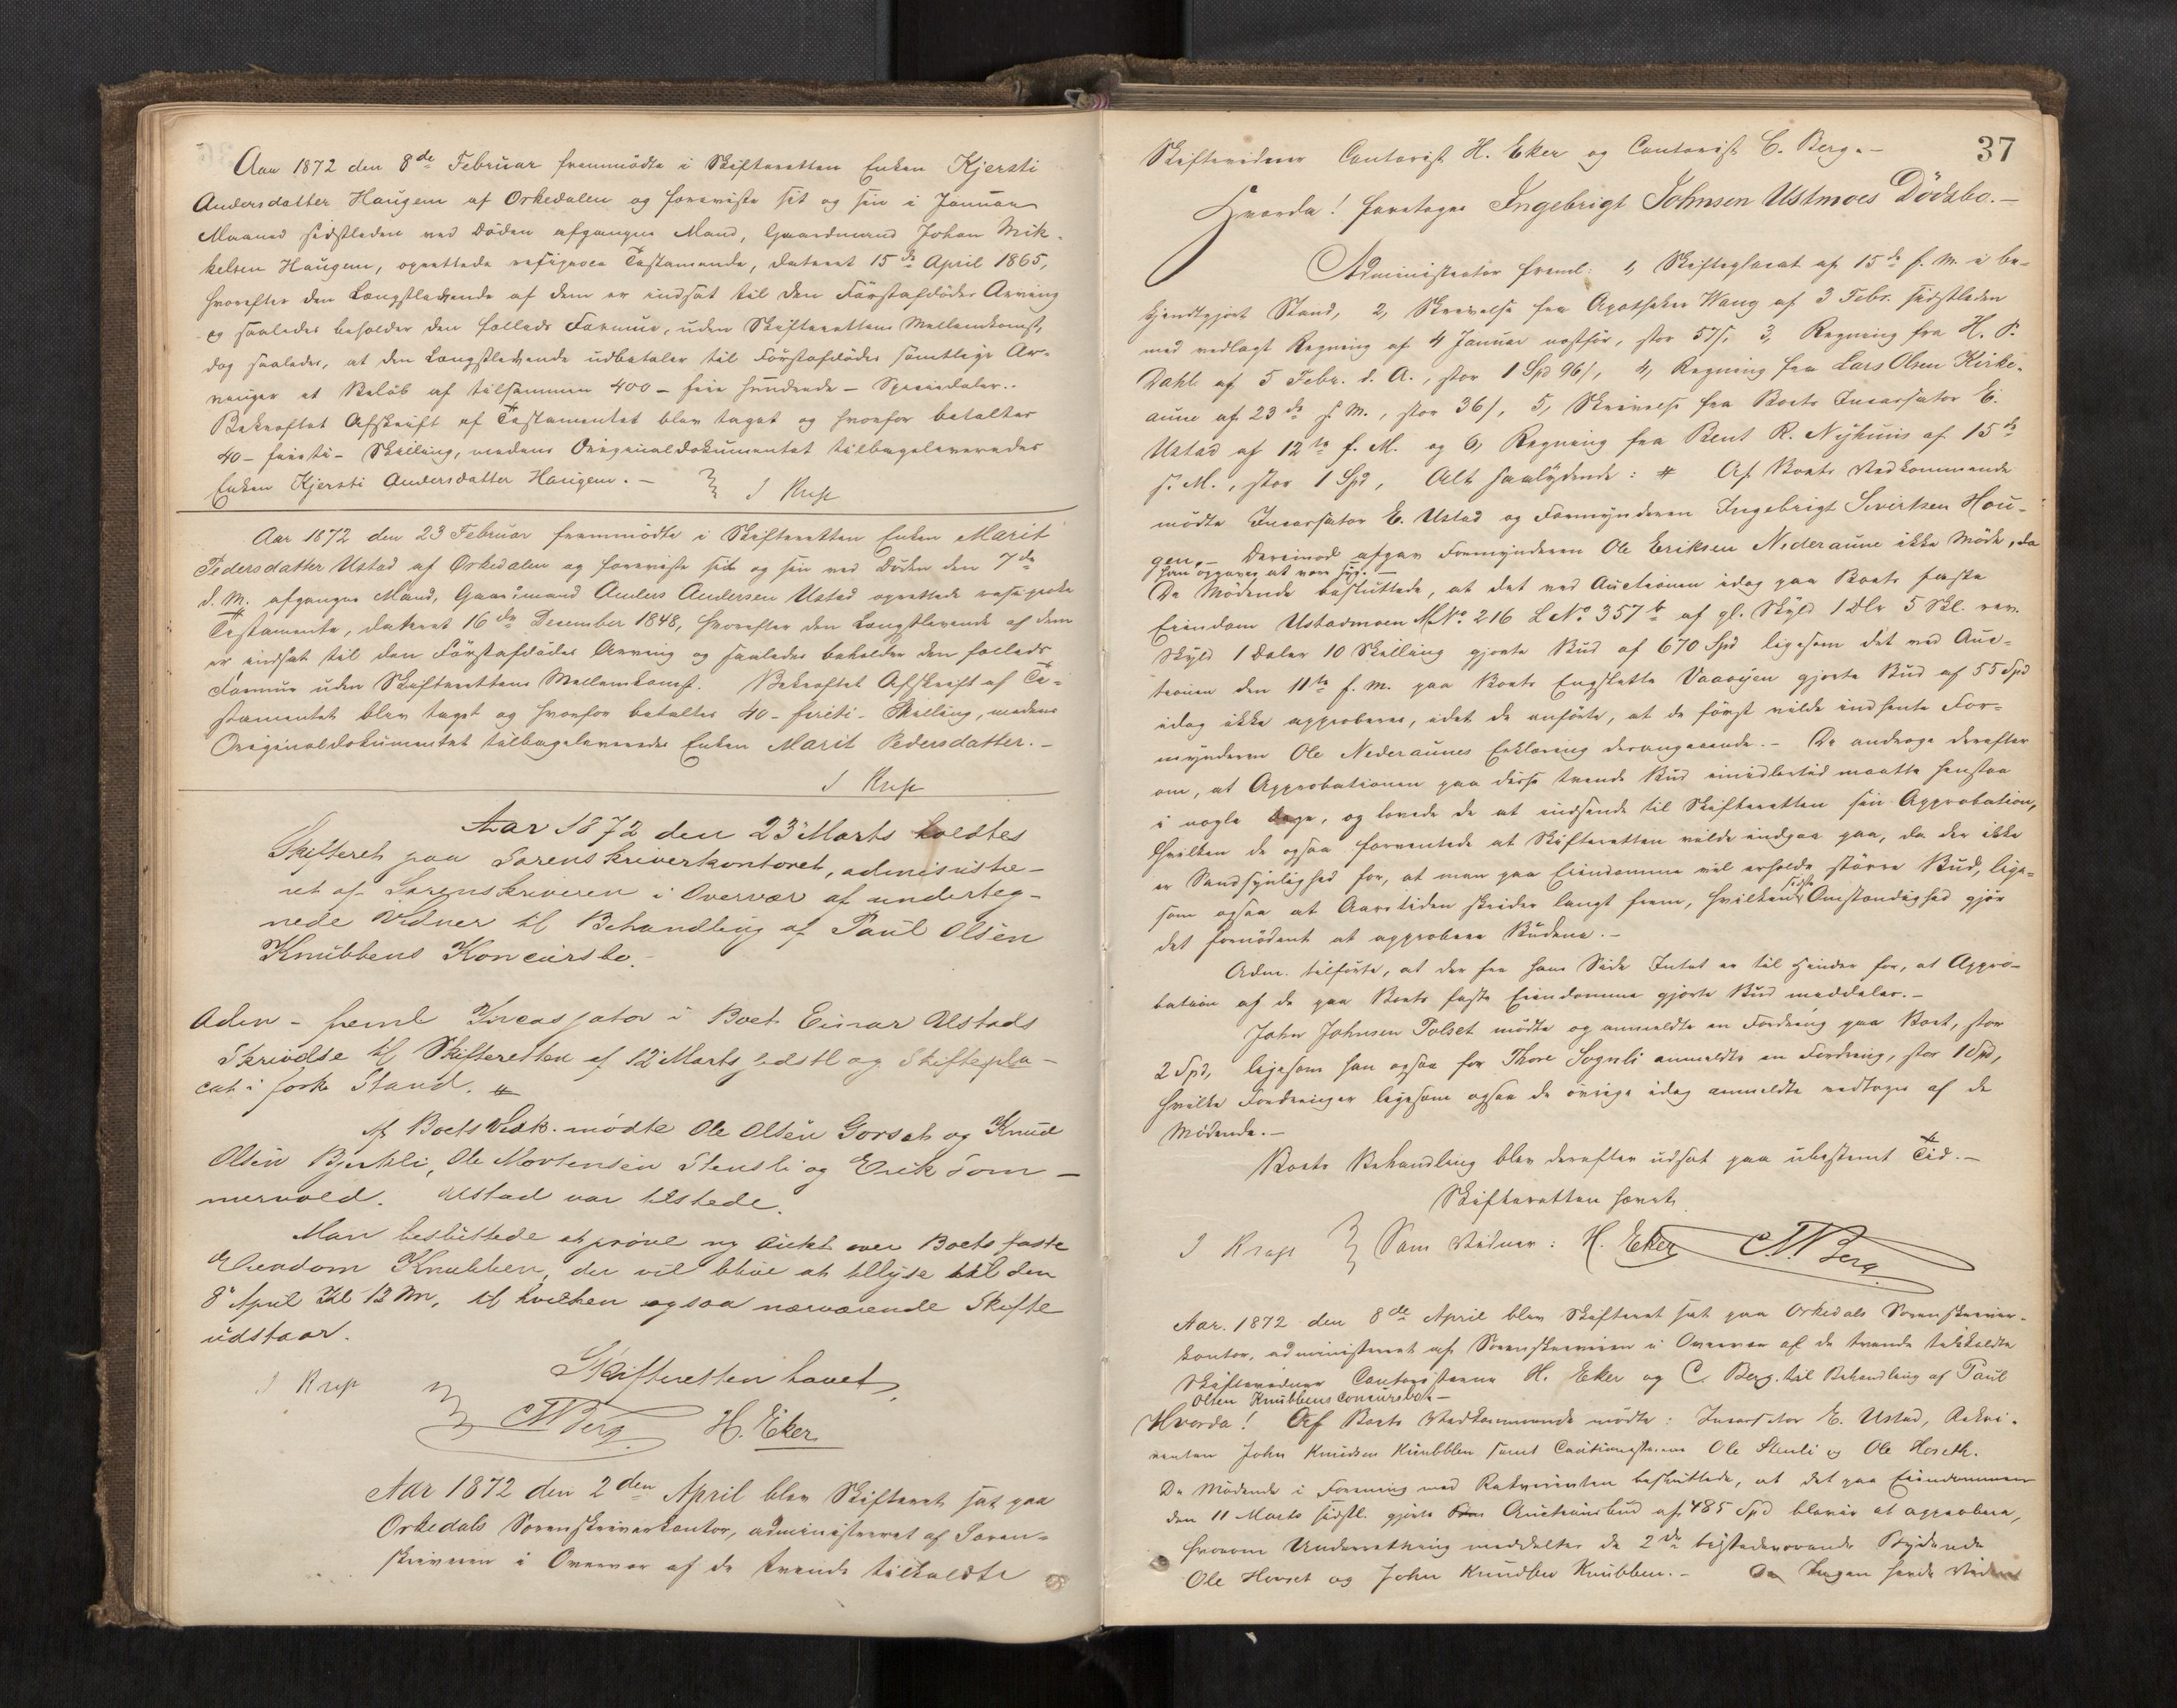 Aar 1872 den 8de Februar fremmödte i Skifteretten Enken Kjersti
Andersdatter Haugen af Orkedalen og foreviste sit og sin i Januar
Maaned sidstleden ved Döden afgangne Mand, Gaardmand Johan Mik-
kelsen Haugen, oprettede reciproce Testamente, dateret 15de April 1865,
hvorefter den Længstlevende af dem er indsat til den Förstafdödes Arving
og saaledes beholder den fælleds Formue, uden Skifterettens Mellemkomst,
dog saaledes, at den Længstlevende udbetaler til Förstafdödes samtlige Ar-
vinger et Belöb af tilsammen 400 - fire hundrede - Speciedaler..
Bekræftet Afskrift af Testamentet blev taget og hvorfor betaltes
40 - firiti - Skilling, medens Originaldokumentet tilbageleveredes
Enken Kjersti Andersdatter Haugen. -
J Krup
Aar 1872 den 23 Februar fremmödte i Skifteretten Enken Marit
Pedersdatter Ustad af Orkedalen og foreviste sit og sin ved Döden den 7de
d. M. afgangne Mand, Gaardmand Anders Andersen Ustad oprettede reciproke
Testamente, dateret 16de December 1848, hvorefter den Længstlevende af dem
er indsat til den Förstafdödes Arving og saaledes beholder den fælleds
Formue uden Skifterettens Mellemkomst. Bekræftet Afskrift af Te-
stamentet blev taget og hvorfor betaltes 40 - firiti - Skilling, medens
Originaldokumentet tilbageleveredes Enken Marit Pedersdatter. -
J Krup
Aar 1872 den 23 Marts holdtes
Skifteret paa Sorenskriverkontoret, administre-
ret af Sorenskriveren i Overvær af underteg-
nede Vidner til Behandling af Paul Olsen
Knubbens Koncursbo.
Adm - freml Incassator i Boet Einar Ustads
Skrivelse til Skifteretten af 12 Marts sidstl og Skiftepla-
cat i fork Stand. #
Af Boets Vedk. mödte Ole Olsen Gorset og Knud
Olsen Bjerkli, Ole Mortensen Stensli og Erik Som-
mervold. Ustad var tilstede.
Man besluttede at pröve ny Aukt over Boets faste
Eiendom Knubben, der vil blive at tillyse til den
8 April Kl 12 Mm, til hvilken ogsaa nærværende Skifte
udstaar.
Skifteretten hævet
J Krup CM Berg. H. Eker
Aar 1872 den 2den April blev Skifteret sat paa
Orkedals Sorenskriverkontor, administreret af Soren-
skriveren i Overvær af de tvende tilkaldte
37
Skiftevidner Contorist H. Eker og Contorist C. Berg. -
Hvorda! foretoges Ingebrigt Johnsen Ustmoes Dödsbo. -
Administrator freml: 1, Skifteplacat af 15de f. M. i be-
kjendtgjort Stand, 2, Skrivelse fra Apotheker Wang af 3 Febr. sidstleden
med vedlagt Regning af 4 Januar næstfør, stor 57/, 3, Regning fra H. P.
Dahl af 5 Febr. d. A., stor 1 Spd 96/, 4, Regning fra Lars Olsen Kirke-
aune af 23de f. M., stor 36/, 5, Skrivelse fra Boets Incassator E.
Ustad af 12te f. M. og 6, Regning fra Bent R. Nyhuus af 15de
f. M., stor 1 Spd, Alt saalydende: # Af Boets Vedkommende
mödte Incassator E. Ustad og Formynderen Ingebrigt Sivertsen Hou-
gen. - Derimod afgav Formynderen Ole Eriksen Nideraune ikke Möde, da
han opgaves at være syg. -
De Mödende besluttede, at det ved Auctionen idag paa Boets faste
Eiendom Ustadmoen M.No. 216 L No. 357b af gl. Skyld 1 Dlr 5 Skl. rev.
Skyld 1 Daler 10 Skilling gjorte Bud af 670 Spd ligesom det ved Auc-
tionen den 11te f. M. paa Boets Engslette Vaaöyen gjorte Bud af 55 Spd
idag ikke approberes, idet de anförte, at de först vilde indhente For-
mynderen Ole Nederaunes Erklæring desangaaende. - De androge derefter
om, at Approbationen paa disse tvende Bud imidlertid maatte henstaa
i nogle Dage, og lovede de at indsende til Skifteretten sin Approbation,
hvilken de ogsaa forventede at Skifteretten vilde indgaa paa, da der ikke
er Sandsynlighed for, at man paa Eiendommene vil erholde större Bud, lige-
som ogsaa at Aarstiden skrider langt frem, hvilken sidste Omstændighed gjør
det fornödent at approbere Budene. -
Adm. tilförte, at der fra hans Side Intet er til Hinder for, at Appro-
bation af de paa Boets faste Eiendomme gjorte Bud meddeles. -
John Johnsen Polset mödte og anmeldte en Fordring paa Boet, stor
2 Spd, ligesom han ogsaa for Thore Sognli anmeldte en Fordring, stor 1 Spd,
hvilke Fordringer ligesom ogsaa de övrige idag anmeldte vedtoges af de
Mödende. -
Boets Behandling blev derefter udsat paa ubestemt Tid. -
Skifteretten hævet.
J Krup Som Vidner: H. Eker CM Berg.
Aar. 1872 den 8de April blev Skifteret sat paa Orkedals Sorenskriver-
kontor, administreret af Sorenskriveren i Overvær af de tvende tilkaldte
Skiftevidner Contoristerne H. Eker og C. Berg. til Behandling af Paul
Olsen Knubbens Concursbo. -
Hvorda! Af Boets Vedkommende mödte: Incassator E. Ustad, Rekvi-
renten John Knudsen Knubben samt Cautionisterne Ole Stenli og Ole Hoseth.
De Mödende i Forening med Rekvirenten besluttede, at det paa Eiendommen
den 11 Marts sidstl. gjorte Auctionsbud af 485 Spd bliver at approbere,
hvorom Underretning meddeltes de 2de tilstedeværende Bydende
Ole Hovset og John Knudsen Knubben. - Da Ingen havde Videre